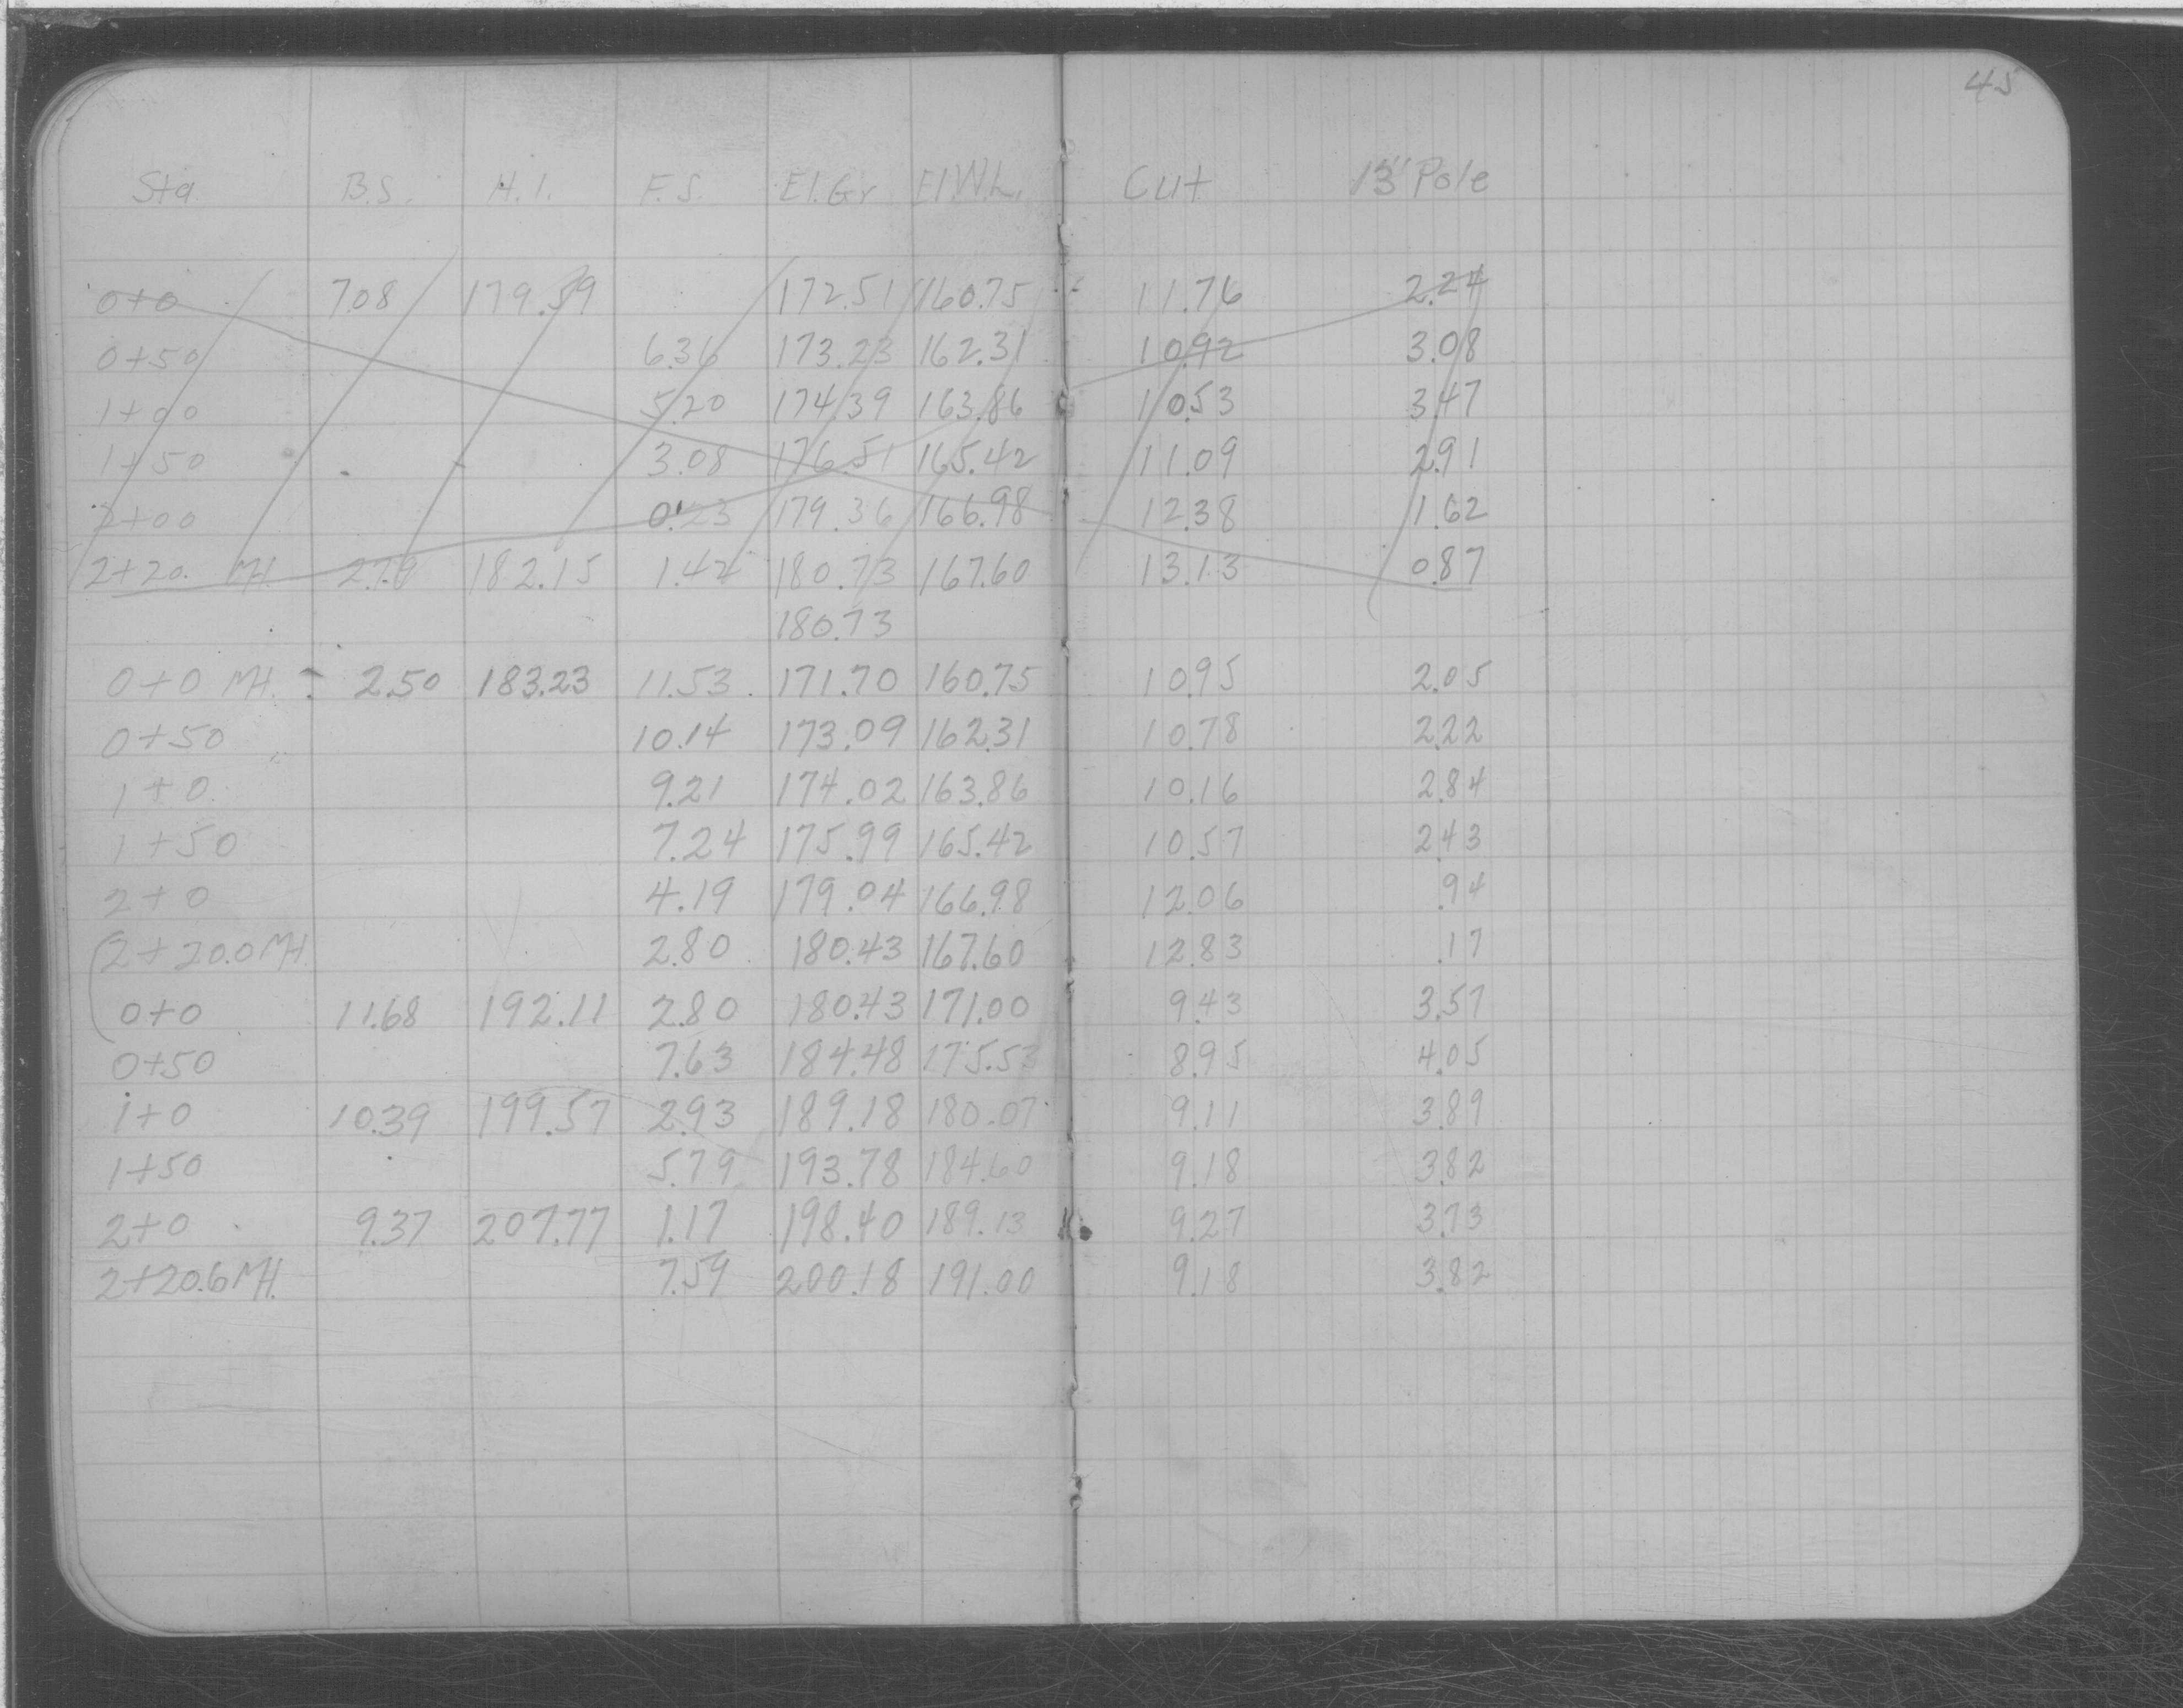 45
Sta. B.S. H.I. F.S. El.Gr El.W.L. Cut 13' Pole
0+0 7.08 179.59 172.51 160.75 11.76 2.24
0+50 6.36 173.23 162.31 10.92 3.08
1+00 5.20 174.39 163.86 10.53 3.47
1+50 3.08 176.51 165.42 11.09 2.91
2+00 0.23 179.36 166.98 12.38 1.62
2+20. MH. 182.15 1.42 180.73 167.60 13.13 0.87
180.73
0+0 MH. 2.50 183.23 11.53 171.70 160.75 10.95 2.05
0+50 10.14 173.09 162.31 10.78 2.22
1+0 9.21 174.02 163.86 10.16 2.84
1+50 7.24 175.99 165.42 10.57 2.43
2+0 4.19 179.04 166.98 12.06 .94
2+20.0 MH. 2.80 180.43 167.60 12.83 .17
0+0 11.68 192.11 2.80 180.43 171.00 9.43 3.57
0+50 7.63 184.48 175.53 8.95 4.05
1+0 10.39 199.57 2.93 189.18 180.07 9.11 3.89
1+50 5.79 193.78 184.60 9.18 3.82
2+0 9.37 207.77 1.17 198.40 189.13 9.27 3.73
2+20.6 MH. 7.59 200.18 191.00 9.18 3.82